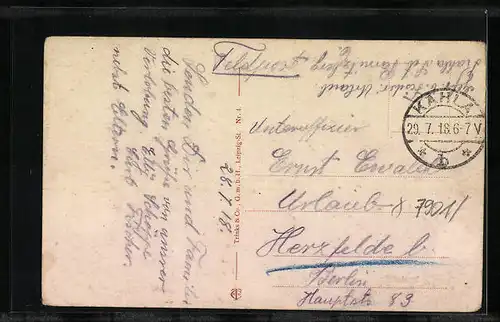 Feldpost
Senden Dir und Familie
die besten Grüße von unserer
Verlobung
Elly
nebst Eltern.
28. 7. 18.
Trinks & Co., G. m. b. H., Leipzig-St. Nr. 4.
Urlaub
KAHLA
29. 7. 18. 6-7 V
* b *
Unteroffizier
Ernst Ewald
Urlaub-
7901/
Herzfelde b.
Berlin
Hauptstr. 83